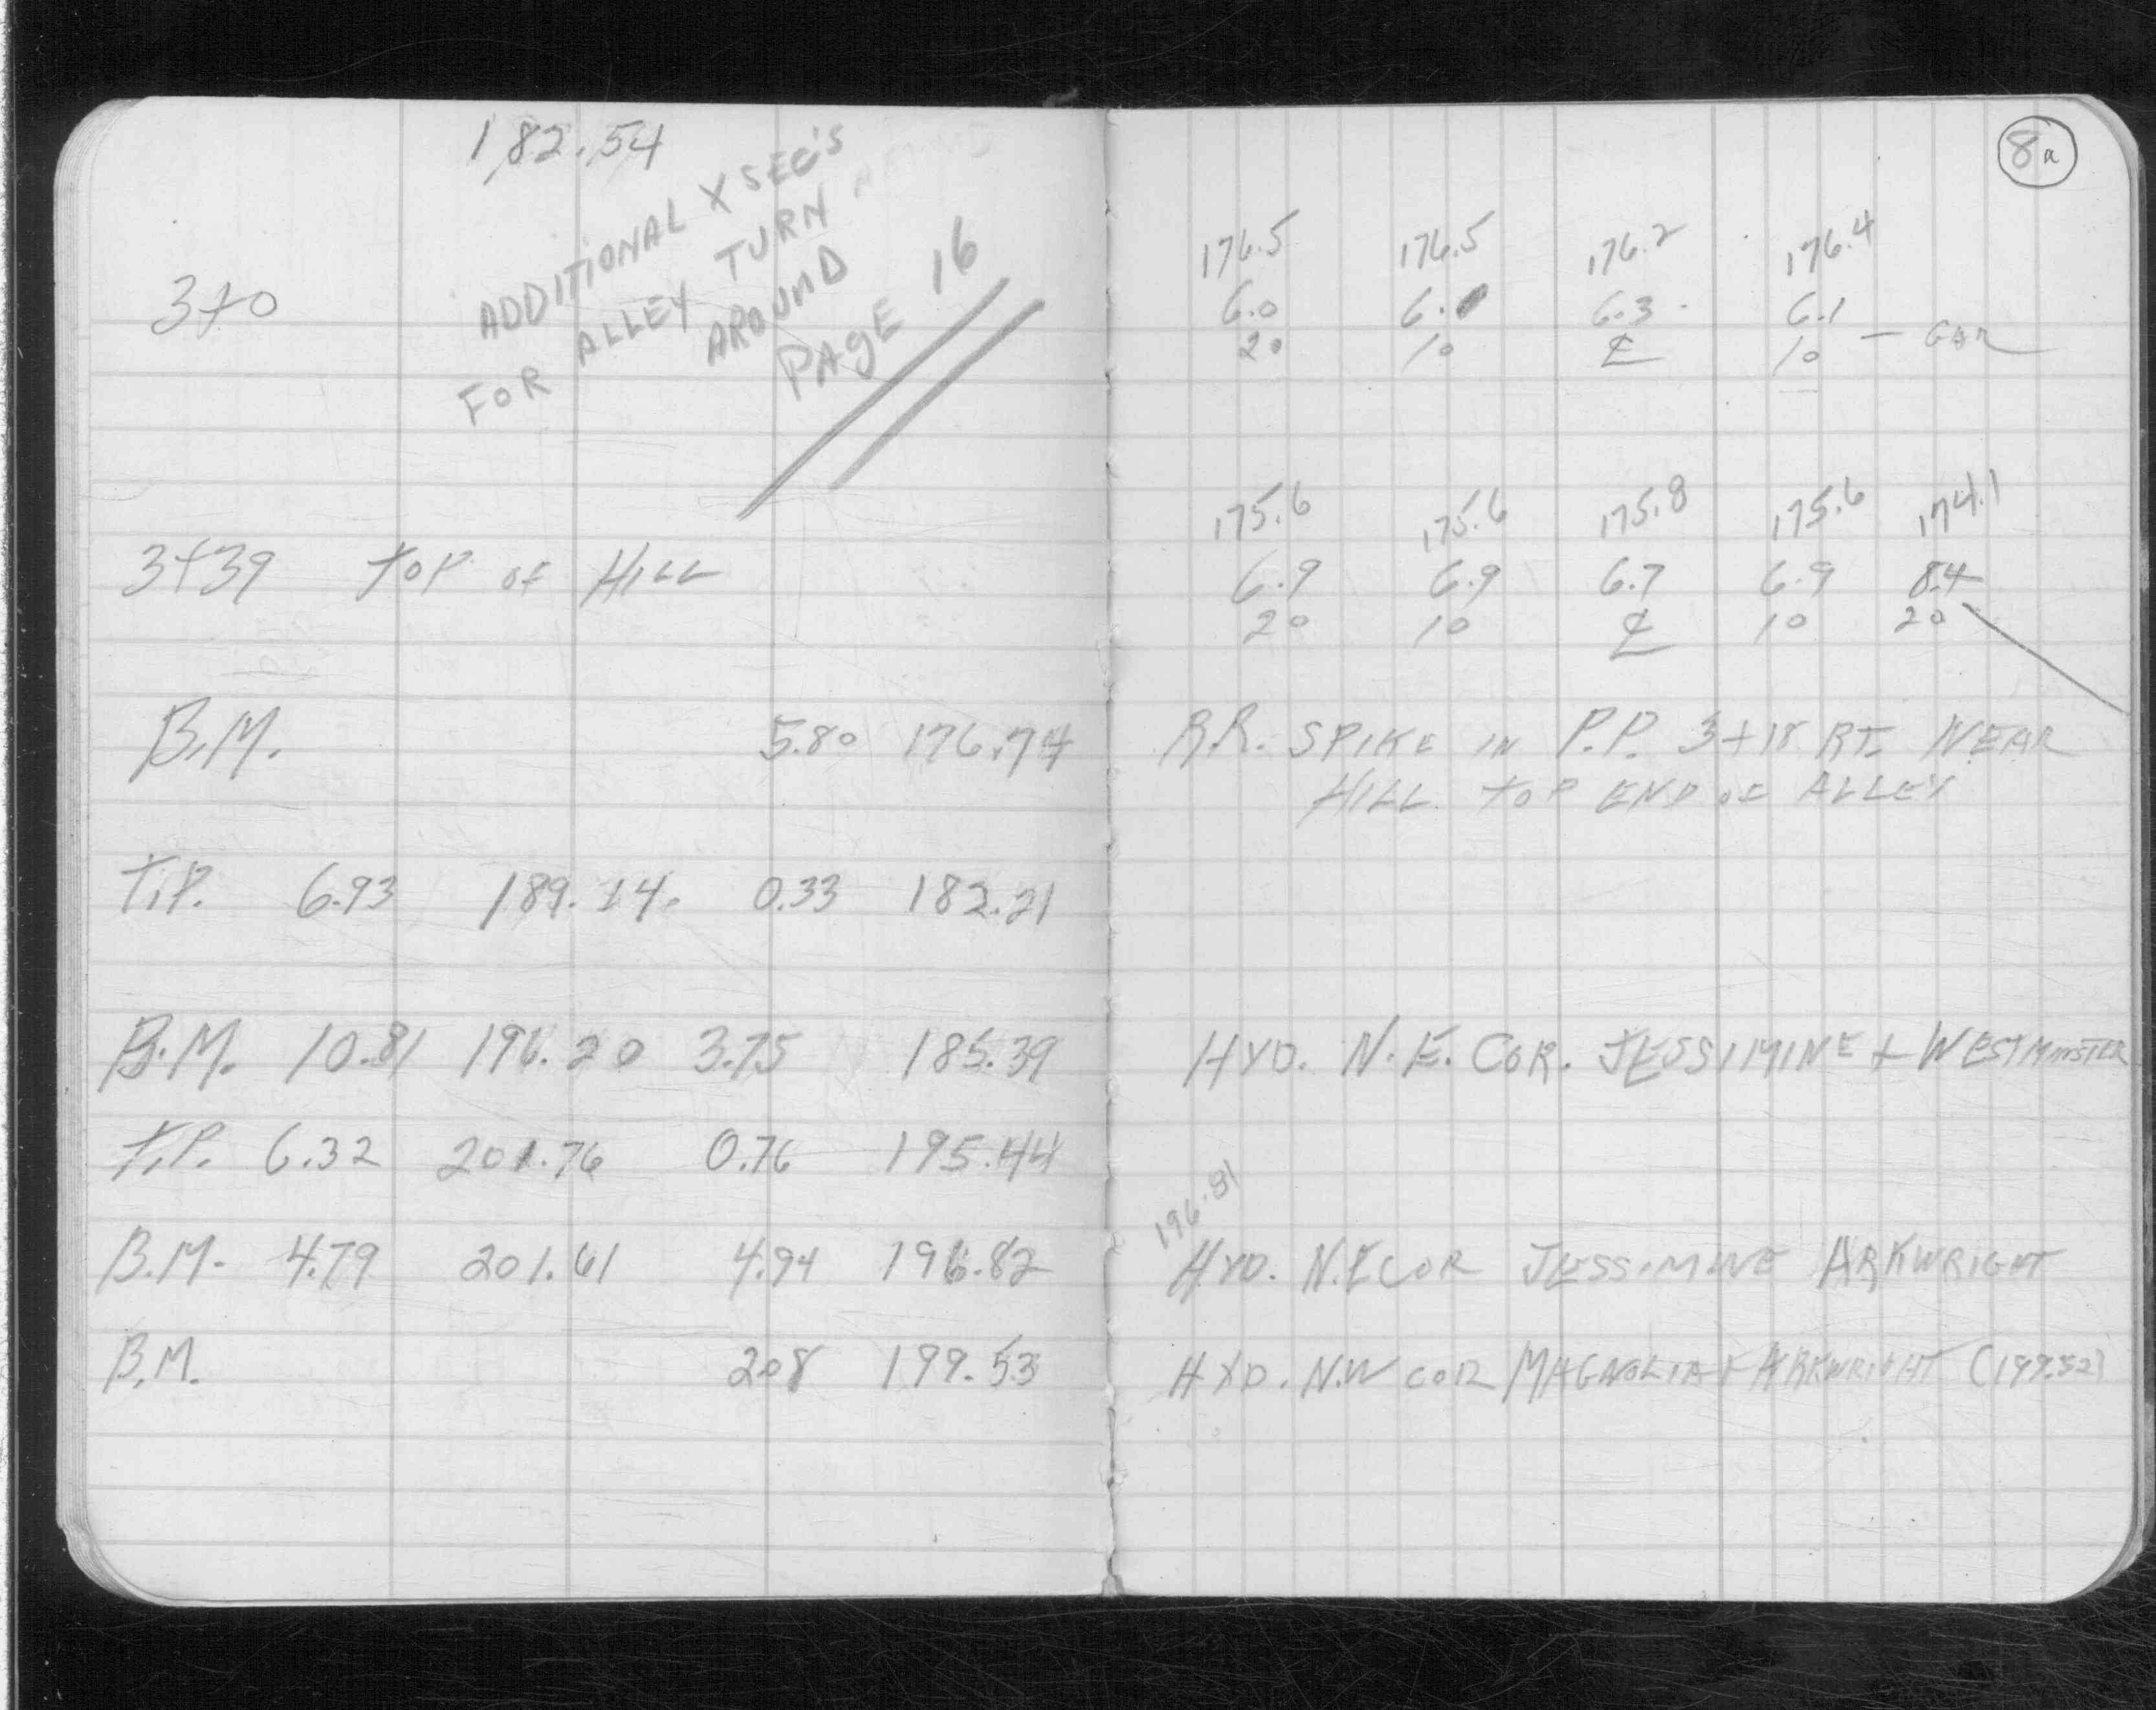 182.54
ADDITIONAL X SEC'S
FOR ALLEY TURN
AROUND
PAGE 16
3+0
3+39 TOP OF HILL
B.M. 5.80 176.74
T.P. 6.93 189.14. 0.33 182.21
B.M. 10.81 196.20 3.75 185.39
T.P. 6.32 201.76 0.76 195.44
B.M. 4.79 201.61 4.94 196.82
B.M. 2.08 199.53
8a
176.5 176.5 176.2 176.4
6.0 6. 6.3 6.1
20 10 ℄ 10 — GAR
175.6 175.6 175.8 175.6 174.1
6.9 6.9 6.7 6.9 8.4
20 10 ℄ 10 20
R.R. SPIKE IN P.P. 3+18 RT. NEAR
HILL TOP END OF ALLEY
HYD. N.E. COR. JESSIMINE + WESTMINSTER
196.81
HYD. N.E COR JESSIMINE ARKWRIGHT
HYD. N.W COR MAGNOLIA + ARKWRIGHT (199.52)